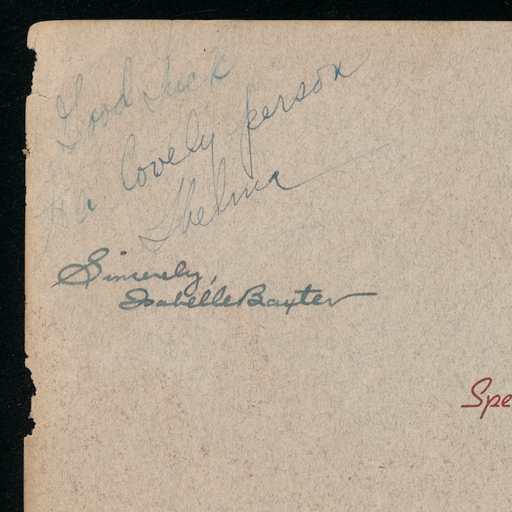 Good luck
to a lovely person
Thelma
Sincerely,
Isabelle Baxter
Spe